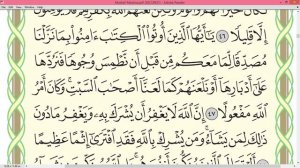 Mushaf Madeenah (SECURED) - Adobe Reader
إِلَّا قَلِيلًا ٤٦ يَٰٓأَيُّهَا ٱلَّذِينَ أُوتُوا۟ ٱلْكِتَٰبَ ءَامِنُوا۟ بِمَا نَزَّلْنَا
مُصَدِّقًا لِّمَا مَعَكُم مِّن قَبْلِ أَن نَّطْمِسَ وُجُوهًا فَنَرُدَّهَا
عَلَىٰٓ أَدْبَارِهَآ أَوْ نَلْعَنَهُمْ كَمَا لَعَنَّآ أَصْحَٰبَ ٱلسَّبْتِ ۚ وَكَانَ أَمْرُ
ٱللَّهِ مَفْعُولًا ٤٧ إِنَّ ٱللَّهَ لَا يَغْفِرُ أَن يُشْرَكَ بِهِۦ وَيَغْفِرُ مَا دُونَ
ذَٰلِكَ لِمَن يَشَآءُ ۚ وَمَن يُشْرِكْ بِٱللَّهِ فَقَدِ ٱفْتَرَىٰٓ إِثْمًا عَظِيمًا